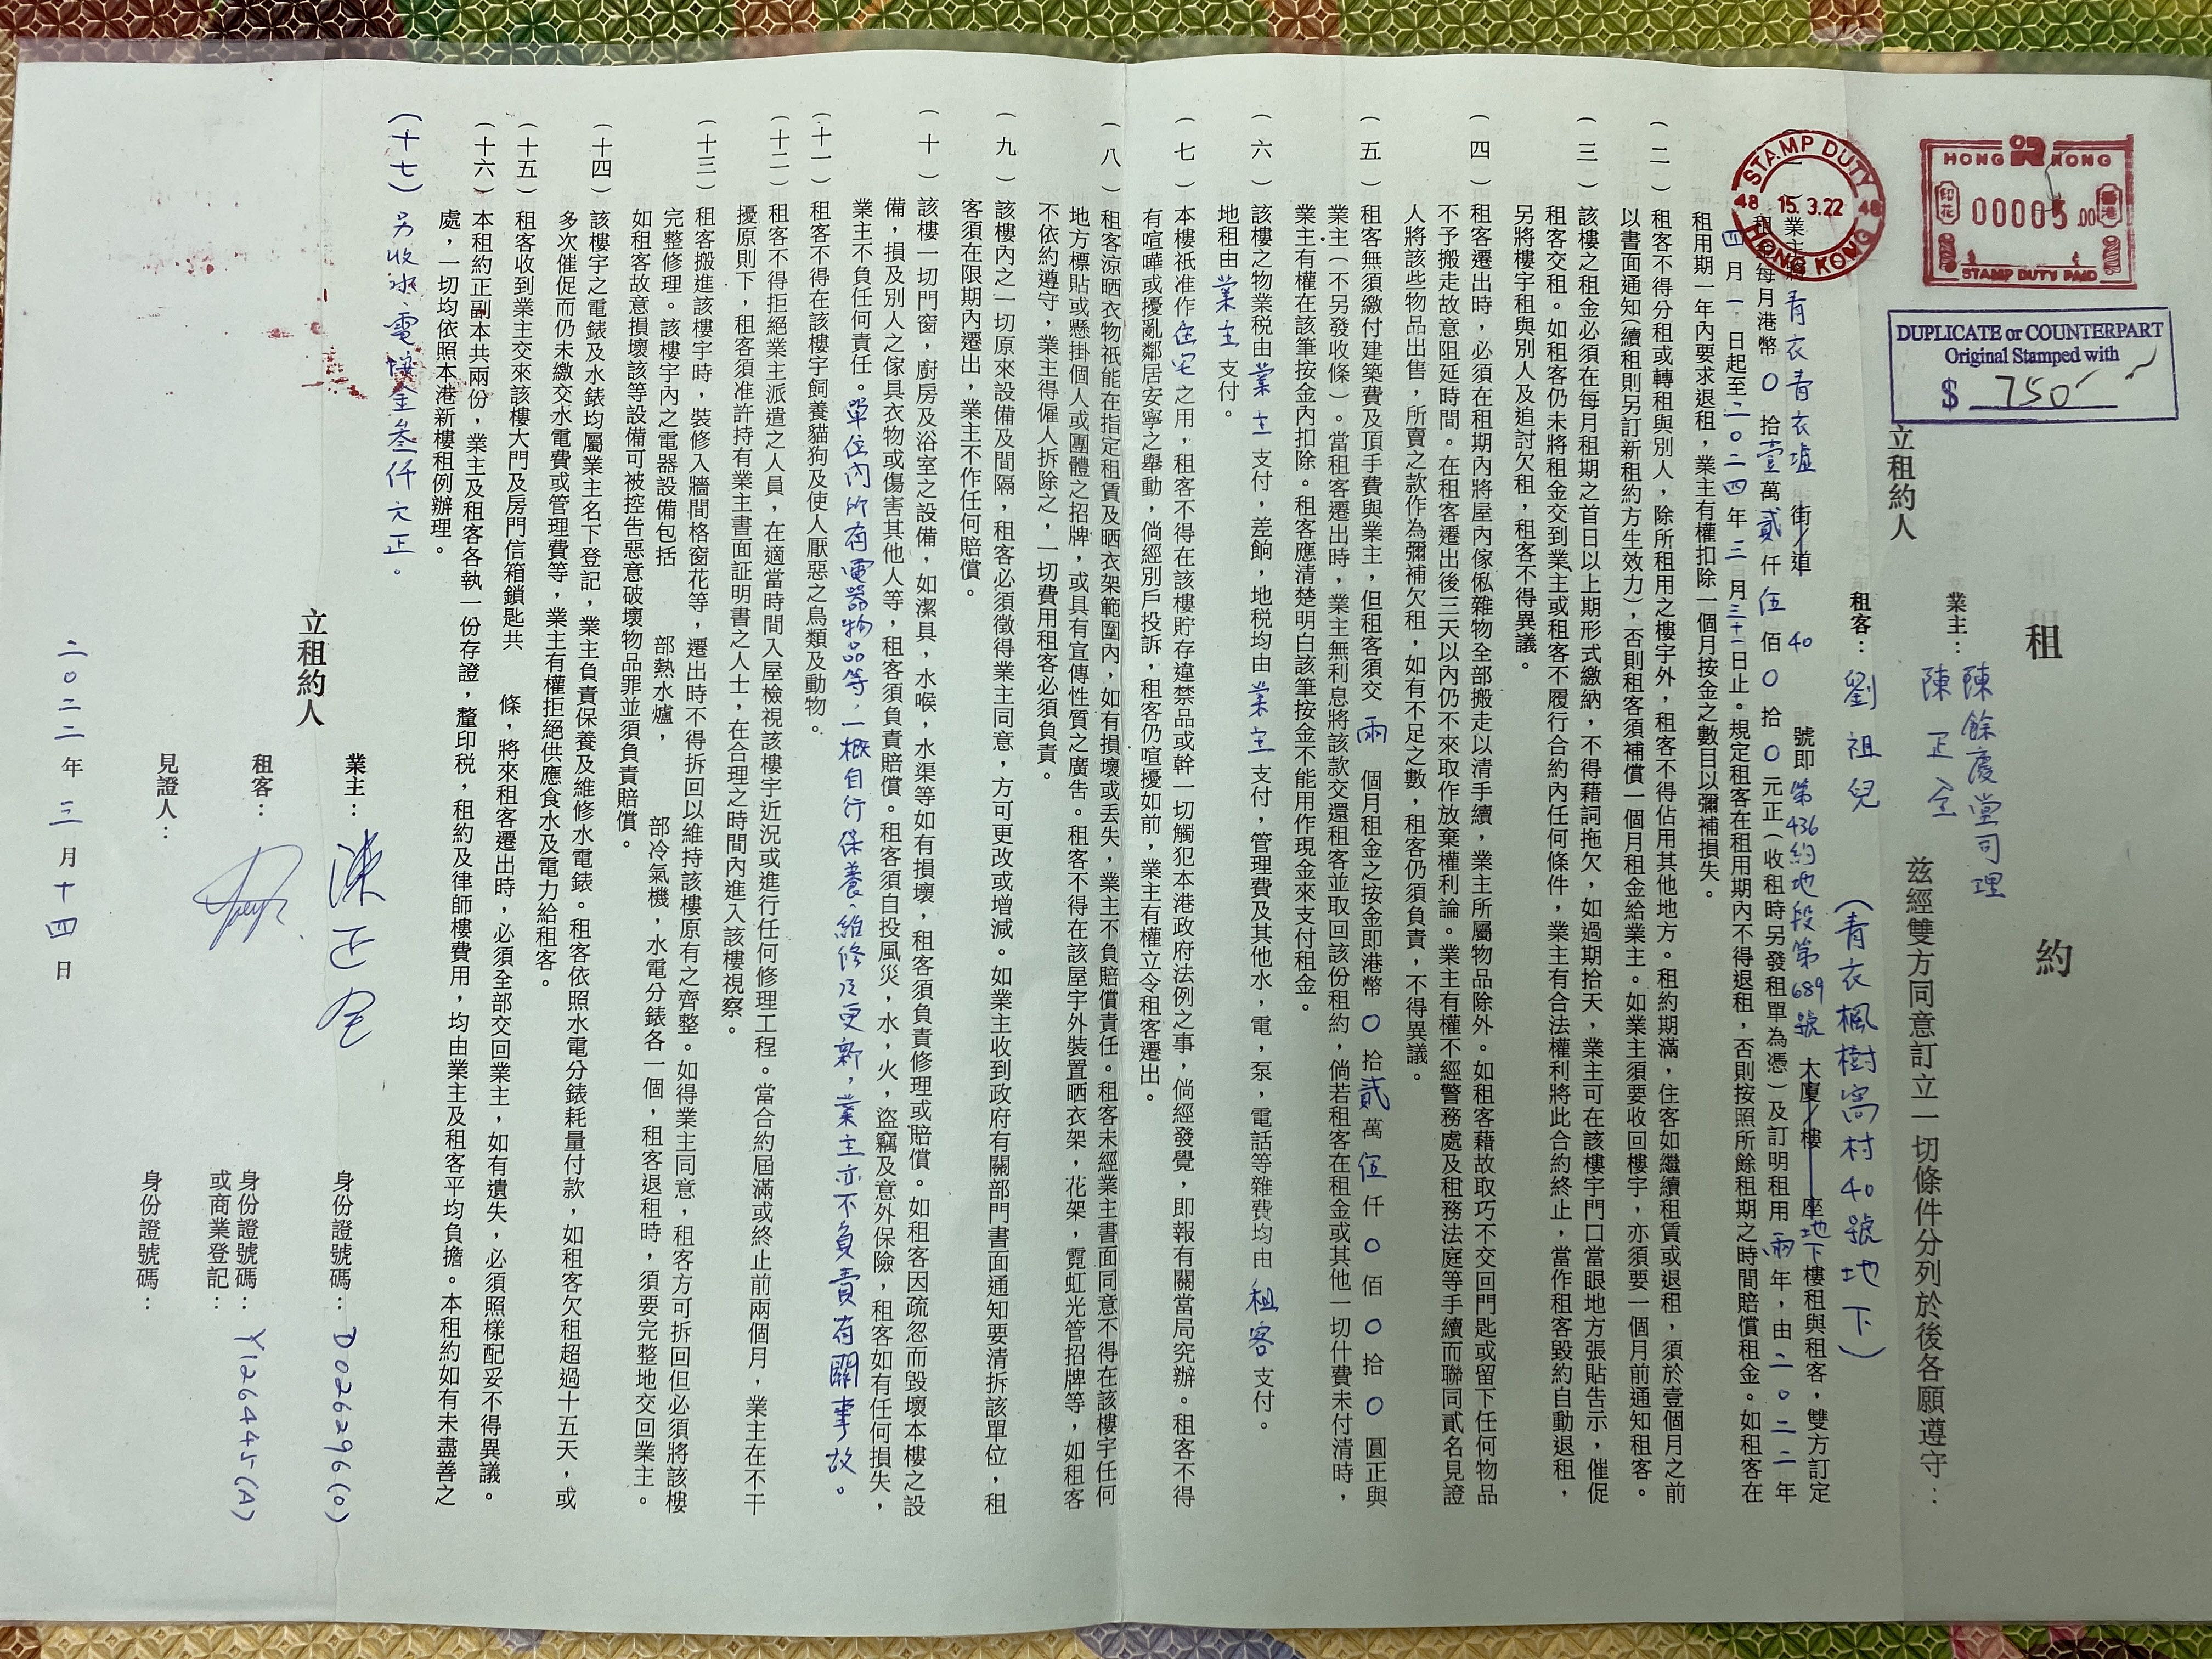 租約
業主：陳餘慶堂司理
陳正全
立租約人 茲經雙方同意訂立一切條件分列於後各願遵守：
租客：劉祖兒 （青衣楓樹窩村40號地下）
HONG KONG
印花
香港
00005.00
STAMP DUTY PAID
STAMP DUTY
48 15.3.22 48
HONG KONG
DUPLICATE or COUNTERPART
Original Stamped with
$ 750
業主將青衣青衣墟街/道40號即第436約地段第689號大廈/樓座地下樓租與租客，雙方訂定
租每月港幣0拾壹萬貳仟伍佰0拾0元正（收租時另發租單為憑）及訂明租用兩年，由二0二二年
四月一日起至二0二四年三月三十一日止。規定租客在租用期內不得退租，否則按照所餘租期之時間賠償租金。如租客在
租用期一年內要求退租，業主有權扣除一個月按金之數目以彌補損失。
（二）租客不得分租或轉租與別人，除所租用之樓宇外，租客不得佔用其他地方。租約期滿，住客如繼續租賃或退租，須於壹個月之前
以書面通知（續租則另訂新租約方生效力），否則租客須補償一個月租金給業主。如業主須要收回樓宇，亦須要一個月前通知租客。
（三）該樓之租金必須在每月租期之首日以上期形式繳納，不得藉詞拖欠，如過期拾天，業主可在該樓宇門口當眼地方張貼告示，催促
租客交租。如租客仍未將租金交到業主或租客不履行合約內任何條件，業主有合法權利將此合約終止，當作租客毀約自動退租，
另將樓宇租與別人及追討欠租，租客不得異議。
（四）租客遷出時，必須在租期內將屋內傢俬雜物全部搬走以清手續，業主所屬物品除外。如租客藉故取巧不交回門匙或留下任何物品
不予搬走故意阻延時間。在租客遷出後三天以內仍不來取作放棄權利論。業主有權不經警務處及租務法庭等手續而聯同貳名見證
人將該些物品出售，所賣之款作為彌補欠租，如有不足之數，租客仍須負責，不得異議。
（五）租客無須繳付建築費及頂手費與業主，但租客須交兩個月租金之按金即港幣0拾貳萬伍仟0佰0拾0圓正與
業主（不另發收條）。當租客遷出時，業主無利息將該款交還租客並取回該份租約，倘若租客在租金或其他一切什費未付清時，
業主有權在該筆按金內扣除。租客應清楚明白該筆按金不能用作現金來支付租金。
（六）該樓之物業税由業主支付，差餉，地税均由業主支付，管理費及其他水，電，泵，電話等雜費均由租客支付。
地租由業主支付。
（七）本樓祇准作住宅之用，租客不得在該樓貯存違禁品或幹一切觸犯本港政府法例之事，倘經發覺，即報有關當局究辦。租客不得
有喧嘩或擾亂鄰居安寧之舉動，倘經別戶投訴，租客仍喧擾如前，業主有權立令租客遷出。
（八）租客涼晒衣物祇能在指定租賃及晒衣架範圍內，如有損壞或丟失，業主不負賠償責任。租客未經業主書面同意不得在該樓宇任何
地方標貼或懸掛個人或團體之招牌，或具有宣傳性質之廣告。租客不得在該屋宇外裝置晒衣架，花架，霓虹光管招牌等，如租客
不依約遵守，業主得僱人拆除之，一切費用租客必須負責。
（九）該樓內之一切原來設備及間隔，租客必須徵得業主同意，方可更改或增減。如業主收到政府有關部門書面通知要清拆該單位，租
客須在限期內遷出，業主不作任何賠償。
（十）該樓一切門窗，廚房及浴室之設備，如潔具，水喉，水渠等如有損壞，租客須負責修理或賠償。如租客因疏忽而毀壞本樓之設
備，損及別人之傢具衣物或傷害其他人等，租客須負責賠償。租客須自投風災，水，火，盜竊及意外保險，租客如有任何損失，
業主不負任何責任。單位內所有電器物品等，一概自行保養、維修及更新，業主亦不負責有關事故。
（十一）租客不得在該樓宇飼養貓狗及使人厭惡之鳥類及動物。
（十二）租客不得拒絕業主派遣之人員，在適當時間入屋檢視該樓宇近況或進行任何修理工程。當合約屆滿或終止前兩個月，業主在不干
擾原則下，租客須准許持有業主書面証明書之人士，在合理之時間內進入該樓視察。
（十三）租客搬進該樓宇時，裝修入牆間格窗花等，遷出時不得拆回以維持該樓原有之齊整。如得業主同意，租客方可拆回但必須將該樓
完整修理。該樓宇內之電器設備包括 部熱水爐， 部冷氣機，水電分錶各一個，租客退租時，須要完整地交回業主。
如租客故意損壞該等設備可被控告惡意破壞物品罪並須負責賠償。
（十四）該樓宇之電錶及水錶均屬業主名下登記，業主負責保養及維修水電錶。租客依照水電分錶耗量付款，如租客欠租超過十五天，或
多次催促而仍未繳交水電費或管理費等，業主有權拒絕供應食水及電力給租客。
（十五）租客收到業主交來該樓大門及房門信箱鎖匙共 條，將來租客遷出時，必須全部交回業主，如有遺失，必須照樣配妥不得異議。
（十六）本租約正副本共兩份，業主及租客各執一份存證，釐印税，租約及律師樓費用，均由業主及租客平均負擔。本租約如有未盡善之
處，一切均依照本港新樓租例辦理。
（十七）另收水、電按金叁仟元正。
立租約人
業主：陳正全 身份證號碼：D026296(0)
租客： 身份證號碼：Y126445(A)
或商業登記：
見證人： 身份證號碼：
二0二二年三月十四日